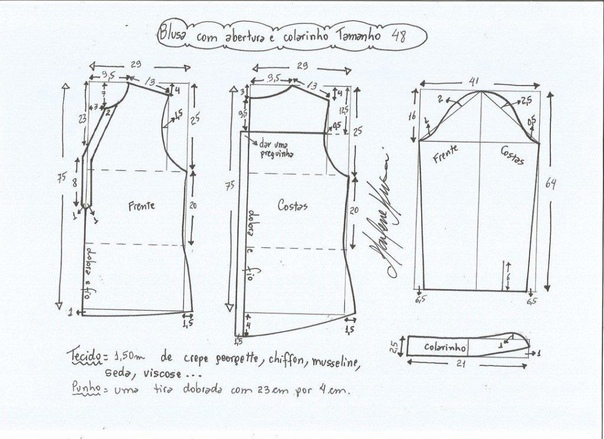 Blusa com abertura e colarinho Tamanho 48
29
9,5
13
4
7
3
2
23
1,5
25
8
75
1
1
Frente
20
dobra e fio
1
1,5
29
9,5
13
3
4
9,5
12,5
0,5
25
dar uma
preguinha
75
Costas
20
dobra e fio
1,5
4
1,5
41
16
2
2,5
0,5
1
Frente
Costas
64
6
6,5
6,5
2,5
colarinho
1
1
21
Tecido = 1,50m de crepe georgette, chiffon, musseline,
seda, viscose...
Punho = uma tira dobrada com 23 cm por 4 cm.